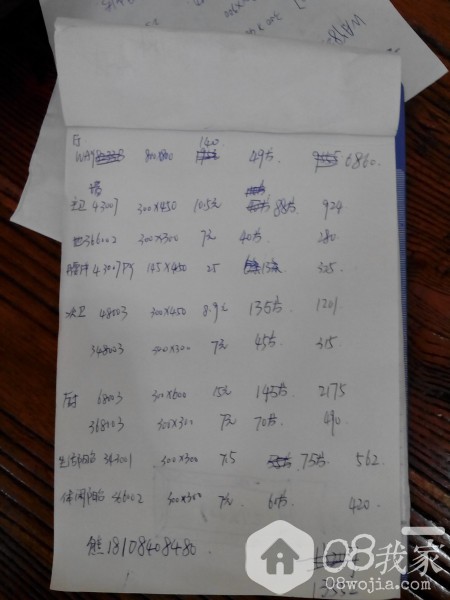 厅 140
800×800 49方 6860
墙
主卫 43007 300×450 10.5元 88方 924
地36002 300×300 7元 40方 280
145×450 25 13方 325
次卫 48003 300×450 8.9元 135方 1201
348003 300×300 7元 45方 315
厨 68003 300×600 15元 145方 2175
368003 300×300 7元 70方 490
生活阳台 300×300 7.5 75方 562
休闲阳台 300×300 7元 60方 420
熊18108408480
08我家
08wojia.com